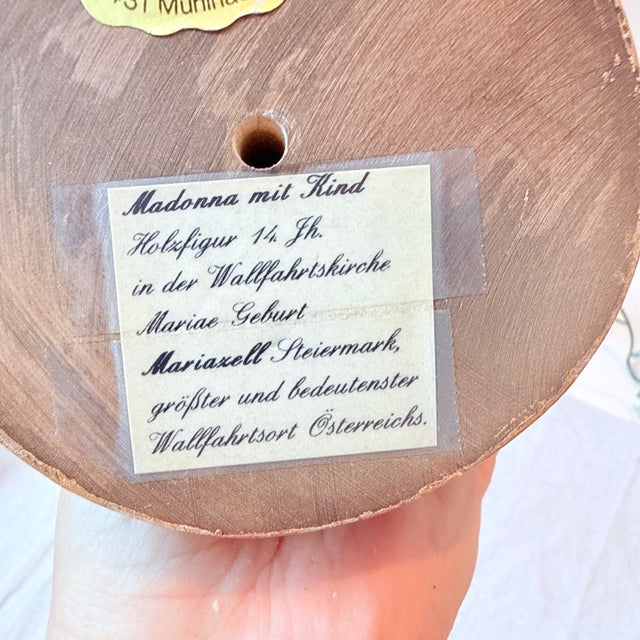 Madonna mit Kind
Holzfigur 14. Jh.
in der Wallfahrtskirche
Mariae Geburt
Mariazell Steiermark,
größter und bedeutenster
Wallfahrtsort Österreichs.